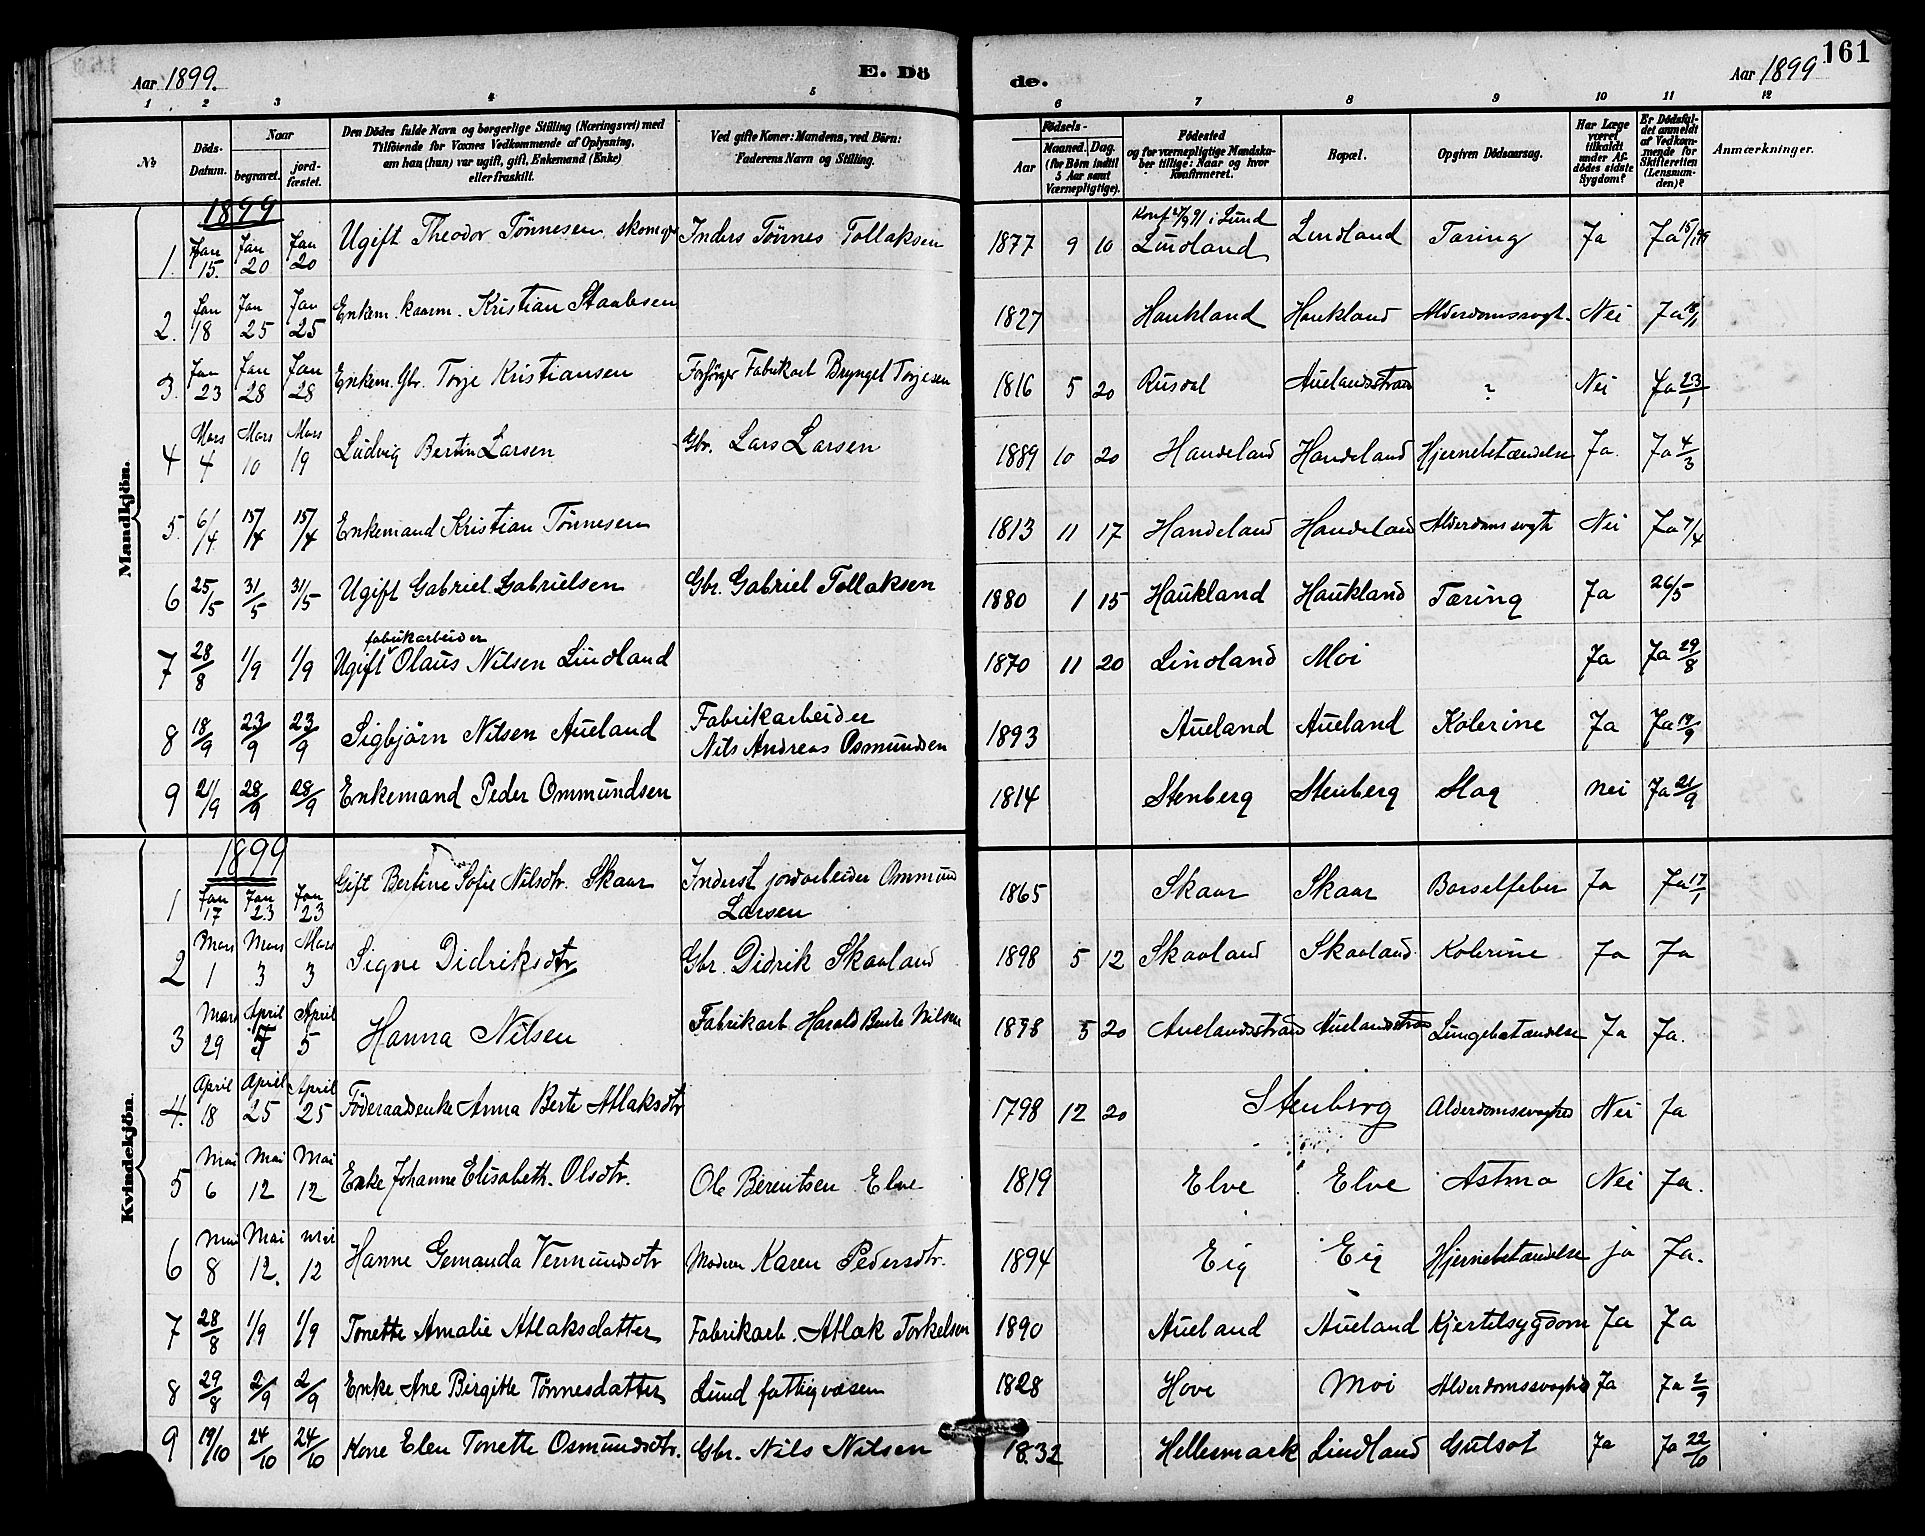 Aar 1899.
E. Dö
de.
Aar 1899
161
1 2 3 4 5 6 7 8 9 10 11 12
No
Döds-Datum.
Naar
begravet.
jord-fæstet.
Den Dödes fulde Navn og borgerlige Stilling (Næringsvei) med Tilföiende for Voxnes Vedkommende af Oplysning, om han (hun) var ugift, gift, Enkemand (Enke) eller fraskilt.
Ved gifte Koner: Mandens, ved Börn: Faderens Navn og Stilling.
Födsels-
Aar
Maaned. Dag.
(for Börn indtil 5 Aar samt Værnepligtige).
Födested og for værnepligtige Mandskaber tillige: Naar og hvor Konfirmeret.
Bopæl.
Opgiven Dödsaarsag.
Har Læge været tilkaldt under Afdödes sidste Sygdom?
Er Dödsfaldet anmeldt af Vedkommende for Skifteretten (Lensmanden)?
Anmærkninger.
Mandkjön.
1899
1. Jan 15. Jan 20 Jan 20 Ugift Theodor Tönnesen Inders Tönnes Tollaksen 1877 9 10 Konf 27/9 91 i Lund Lindland Lindland Tæring Ja Ja 15/1
2. Jan 18 Jan 25 Jan 25 Enkem. kaarm. Kristian Staalesen 1827 Haukland Haukland Alderdomssvagh. Nei Ja 18/1
3. Jan 23 Jan 28 Jan 28 Enkem. Gbr. Torje Kristiansen Forsörger Fabrikarb Bryngel Torjesen 1816 5 20 Rusdal Auelandsstran ? Nei Ja 23/1
4 Mars 4 Mars 10 Mars 19 Ludvig Bertin Larsen Gbr. Lars Larsen 1889 10 20 Handeland Handeland Hjernebetændelse Ja. Ja 4/3
5. 6/4 15/4 15/4 Enkemand Kristian Tönnesen 1813 11 17 Handeland Handeland Alderdomssvagh Nei Ja 7/4
6 25/5 31/5 31/5 Ugift Gabriel Gabrielsen Gbr. Gabriel Tollaksen 1880 1 15 Haukland Haukland Tæring Ja 26/5
7 28/8 1/9 1/9 Ugift fabrikarbeider Olaus Nilsen Lindland 1870 11 20 Lindland Moi Ja Ja 29/8
8 18/9 23/9 23/9 Sigbjörn Nilsen Aueland Fabrikarbeider Nils Andreas Osmundsen 1893 Aueland Aueland Kolerine Ja Ja 19/9
9 21/9 28/9 28/9 Enkemand Peder Ommundsen 1814 Stenberg Stenberg Slag Nei Ja 21/9
Kvindekjön.
1899
1 Jan 17 Jan 23 Jan 23 Gift Bertine Sofie Nilsdtr. Skaar Inderst jordarbeider Ommund Larsen 1865 Skaar Skaar Barselfeber Ja Ja 17/1
2 Mars 1 Mars 3 Mars 3 Signe Didriksdtr Gbr. Didrik Skaaland 1898 5 12 Skaaland Skaaland Kolerine Ja Ja
3 Mars 29 April 5 April 5 Hanna Nilsen Fabrikarb Harald Bent Nilsen 1898 5 20 Auelandsstrand Auelandsstrand Lungebetændelse Ja Ja.
4. April 18 April 25 April 25 Föderaadsenke Anna Berte Atlaksdtr 1798 12 20 Stenberg Alderdomssvaghed Nei Ja
5 Mai 6 Mai 12 Mai 12 Enke Johanne Elisabeth. Olsdtr. Ole Berentsen Elve 1819 Elve Elve Astma Nei Ja.
6 Mai 8 Mai 12. Mai 12 Hanne Gemanda Vermundsdtr Moderen Karen Pedersdtr. 1894 Eig Eig Hjernebetændelse ja Ja.
7 28/8 1/9 1/9 Tonette Amalie Atlaksdatter Fabrikarb. Atlak Torkelsen 1890 Aueland Aueland Kjertelsygdom Ja Ja
8 29/8 2/9 2/9 Enke Ane Birgitte Tönnesdatter Lund fattigvæsen 1828 Hove Moi Alderdomssvaghed Ja Ja 2/9
9 19/10 24/10 24/10 Kone Elen Tonette Osmundsdtr. Gbr. Nils Nilsen 1832 Hellesmark Lindland Gulsot Ja Ja 22/10